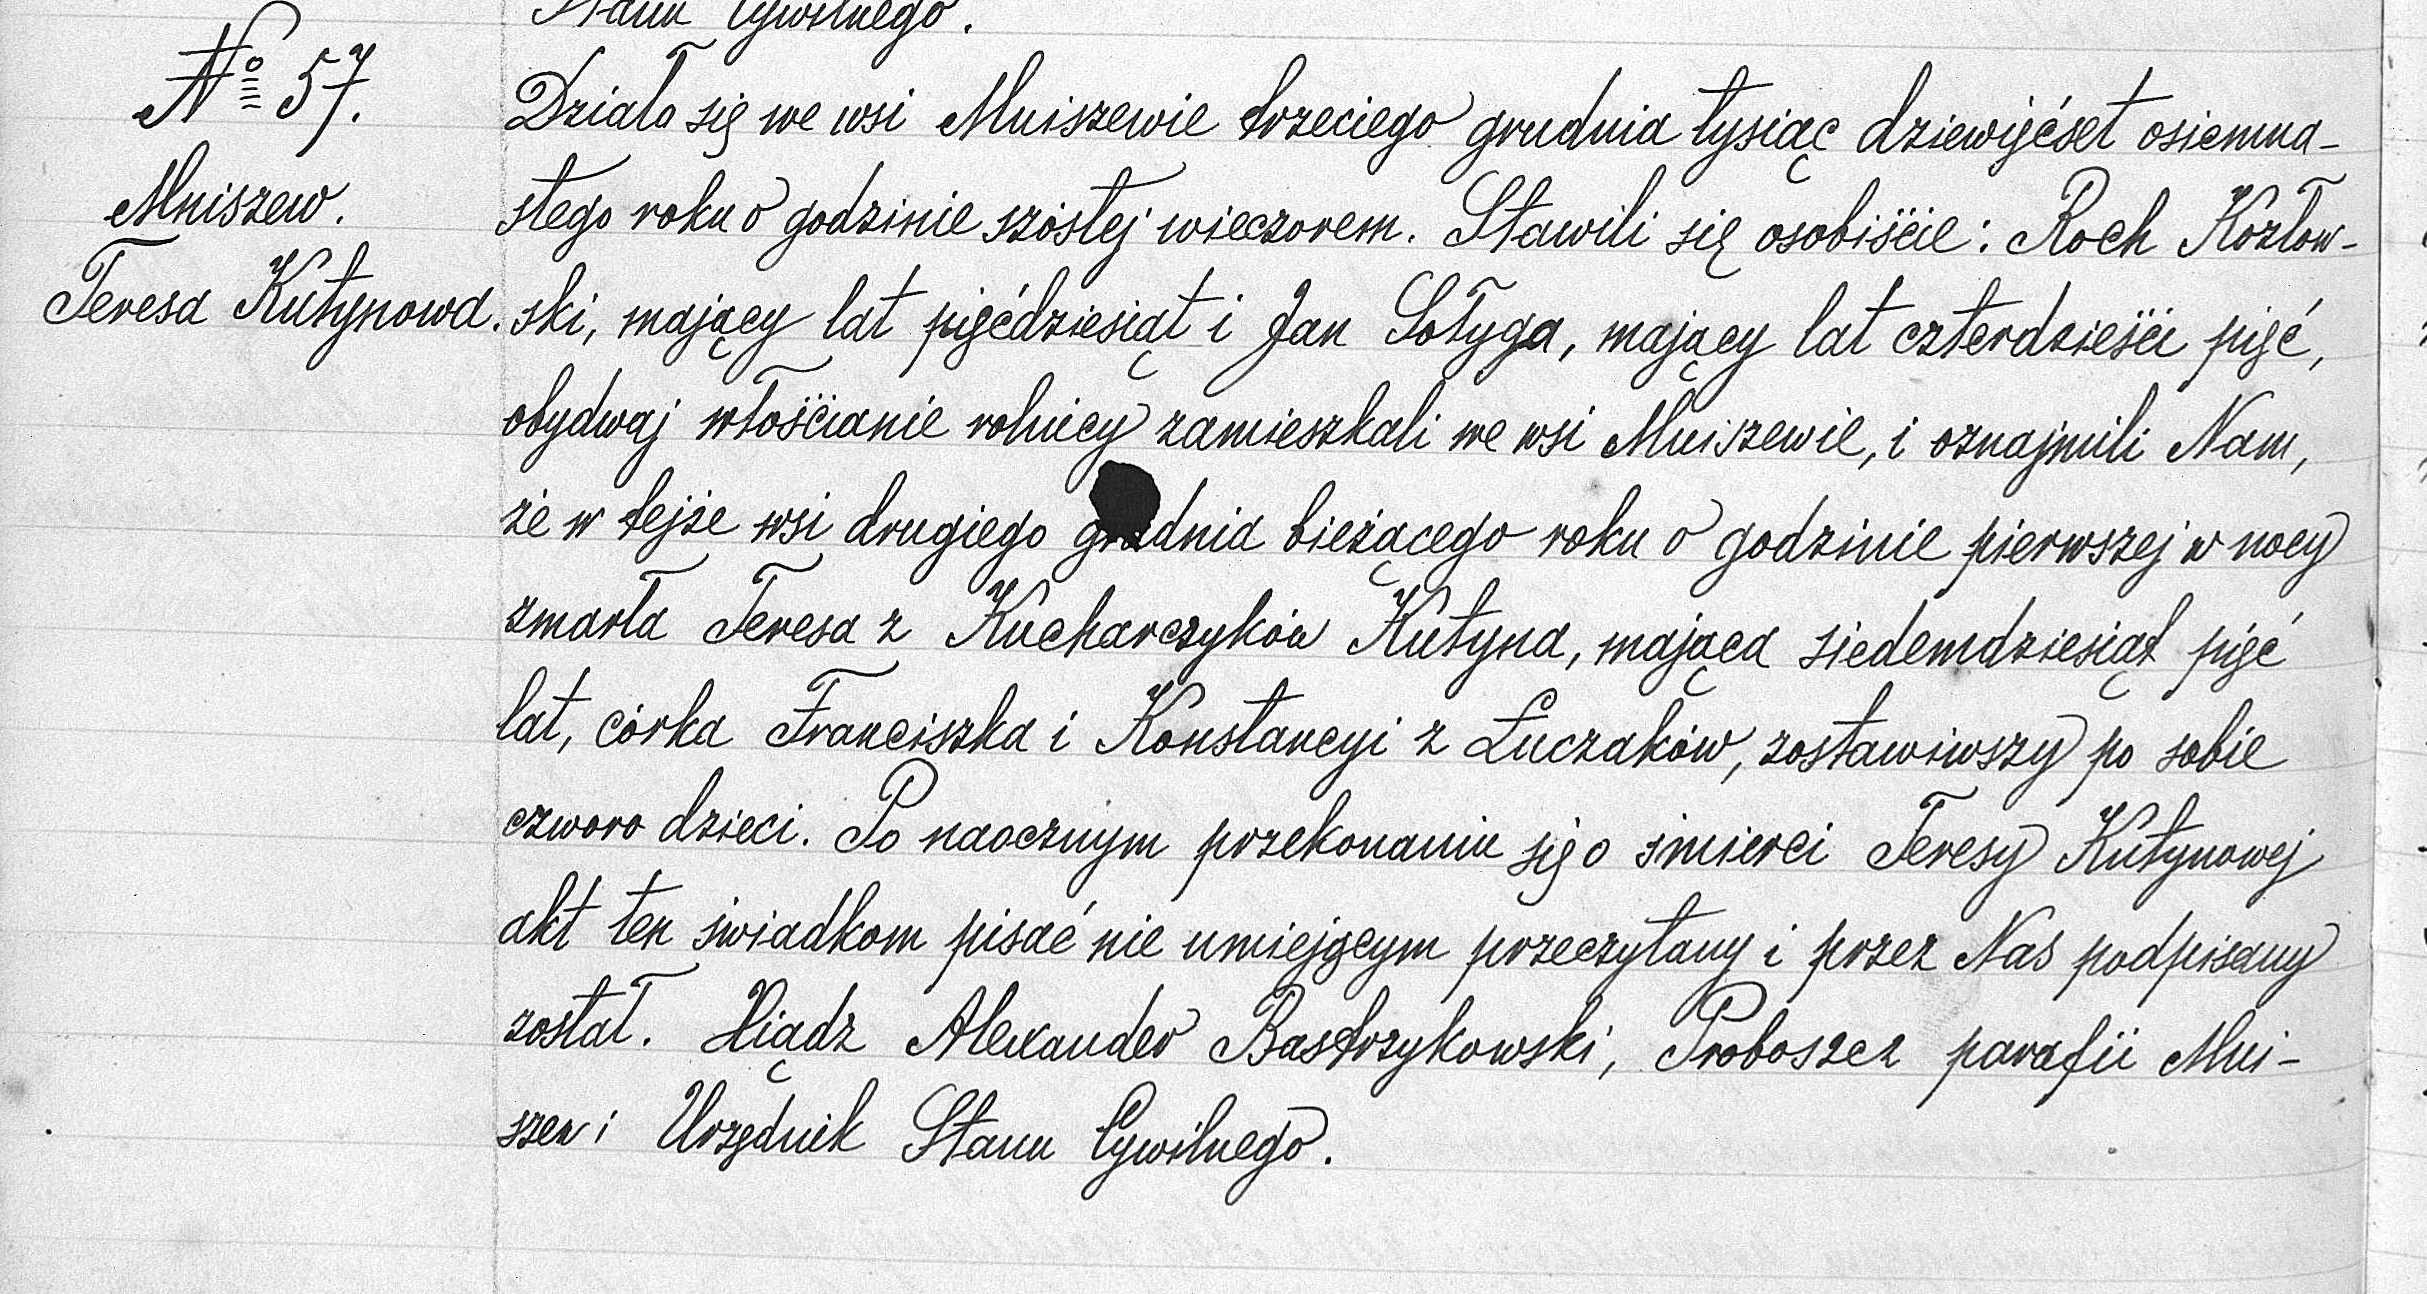 Stanu Cywilnego.
№ 57.
Mniszew.
Teresa Kutynowa.
Działo się we wsi Mniszewie trzeciego grudnia tysiąc dziewięćset osiemna-
stego roku o godzinie szóstej wieczorem. Stawili się osobiście: Roch Kozłow-
ski, mający lat pięćdziesiąt i Jan Sołyga, mający lat czterdzieści pięć,
obydwaj włościanie rolnicy zamieszkali we wsi Mniszewie, i oznajmili Nam,
że w tejże wsi drugiego grudnia bieżącego roku o godzinie pierwszej w nocy
zmarła Teresa z Kucharczyków Kutyna, mająca siedemdziesiąt pięć
lat, córka Franciszka i Konstancyi z Łuczaków, zostawiwszy po sobie
czworo dzieci. Po naocznym przekonaniu się o śmierci Teresy Kutynowej
akt ten świadkom pisać nie umiejącym przeczytany i przez Nas podpisany
został. Xiądz Alexander Bastrzykowski, Proboszcz parafii Mni-
szew i Urzędnik Stanu Cywilnego.